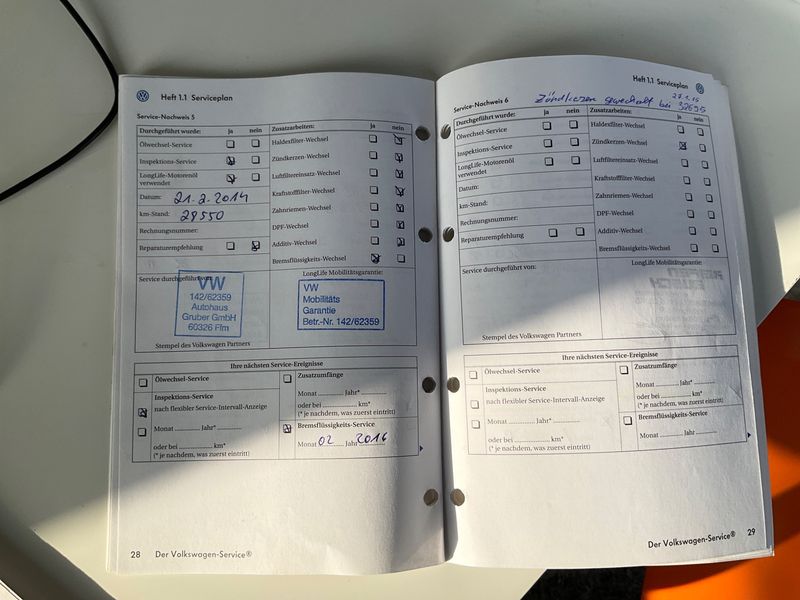 Heft 1.1 Serviceplan
Service-Nachweis 5
Durchgeführt wurde: ja nein
Ölwechsel-Service
Inspektions-Service
LongLife-Motorenöl
verwendet
Datum: 21.2.2014
km-Stand: 28550
Rechnungsnummer:
Reparaturempfehlung
Zusatzarbeiten: ja nein
Haldexfilter-Wechsel
Zündkerzen-Wechsel
Luftfiltereinsatz-Wechsel
Kraftstofffilter-Wechsel
Zahnriemen-Wechsel
DPF-Wechsel
Additiv-Wechsel
Bremsflüssigkeits-Wechsel
Service durchgeführt von:
VW
142/62359
Autohaus
Gruber GmbH
60326 Ffm
Stempel des Volkswagen Partners
LongLife Mobilitätsgarantie:
VW
Mobilitäts
Garantie
Betr.-Nr. 142/62359
Ihre nächsten Service-Ereignisse
Ölwechsel-Service
Inspektions-Service
nach flexibler Service-Intervall-Anzeige
Monat Jahr*
oder bei km*
(* je nachdem, was zuerst eintritt)
Zusatzumfänge
Monat Jahr*
oder bei km*
(* je nachdem, was zuerst eintritt)
Bremsflüssigkeits-Service
Monat 02 Jahr 2016
28 Der Volkswagen-Service®
Heft 1.1 Serviceplan
Service-Nachweis 6
Zündkerzen gewechselt bei 32695
Durchgeführt wurde: ja nein
Ölwechsel-Service
Inspektions-Service
LongLife-Motorenöl
verwendet
Datum:
km-Stand:
Rechnungsnummer:
Reparaturempfehlung
Zusatzarbeiten: ja nein
Haldexfilter-Wechsel
Zündkerzen-Wechsel
Luftfiltereinsatz-Wechsel
Kraftstofffilter-Wechsel
Zahnriemen-Wechsel
DPF-Wechsel
Additiv-Wechsel
Bremsflüssigkeits-Wechsel
Service durchgeführt von:
Stempel des Volkswagen Partners
LongLife Mobilitätsgarantie:
Ihre nächsten Service-Ereignisse
Ölwechsel-Service
Inspektions-Service
nach flexibler Service-Intervall-Anzeige
Monat Jahr*
oder bei km*
(* je nachdem, was zuerst eintritt)
Zusatzumfänge
Monat Jahr*
oder bei km*
(* je nachdem, was zuerst eintritt)
Bremsflüssigkeits-Service
Monat Jahr
Der Volkswagen-Service® 29